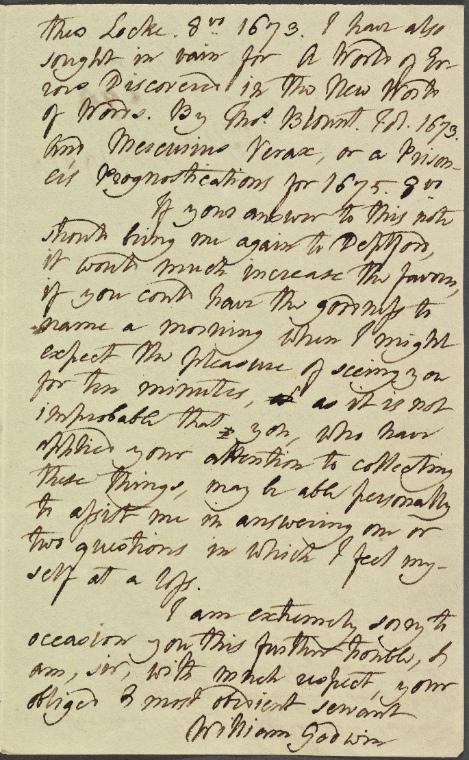 thew Locke. 8vo 1673. I have also
sought in vain for A World of Er-
rors Discovered in the New World
of Words. By Thos. Blount. Fol. 1673.
And Mercurius Verax, or a Prison-
er's Prognostications for 1675. 8vo
If your answer to this note
should bring me again to Deptford,
it would much increase the favour,
if you could have the goodness to
name a morning when I might
expect the pleasure of seeing you
for ten minutes, as it is not
improbable that you, who have
applied your attention to collecting
these things, may be able personally
to assist me in answering one or
two questions in which I feel my-
self at a loss.
I am extremely sorry to
occasion you this further trouble, &
am, sir, with much respect, your
obliged & most obedient servant
William Godwin